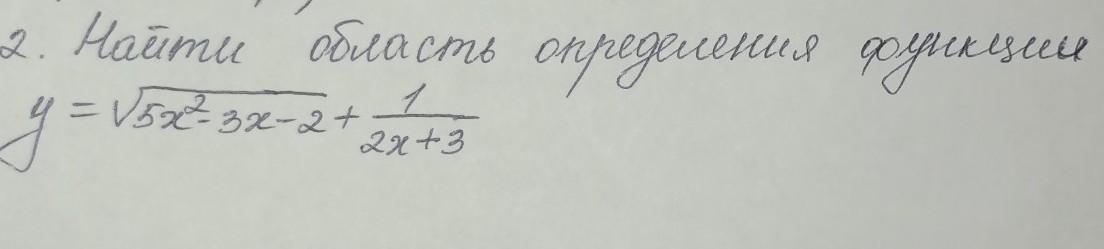 2. Найти область определения функции
y = √5x² - 3x - 2 + 1/2x+3